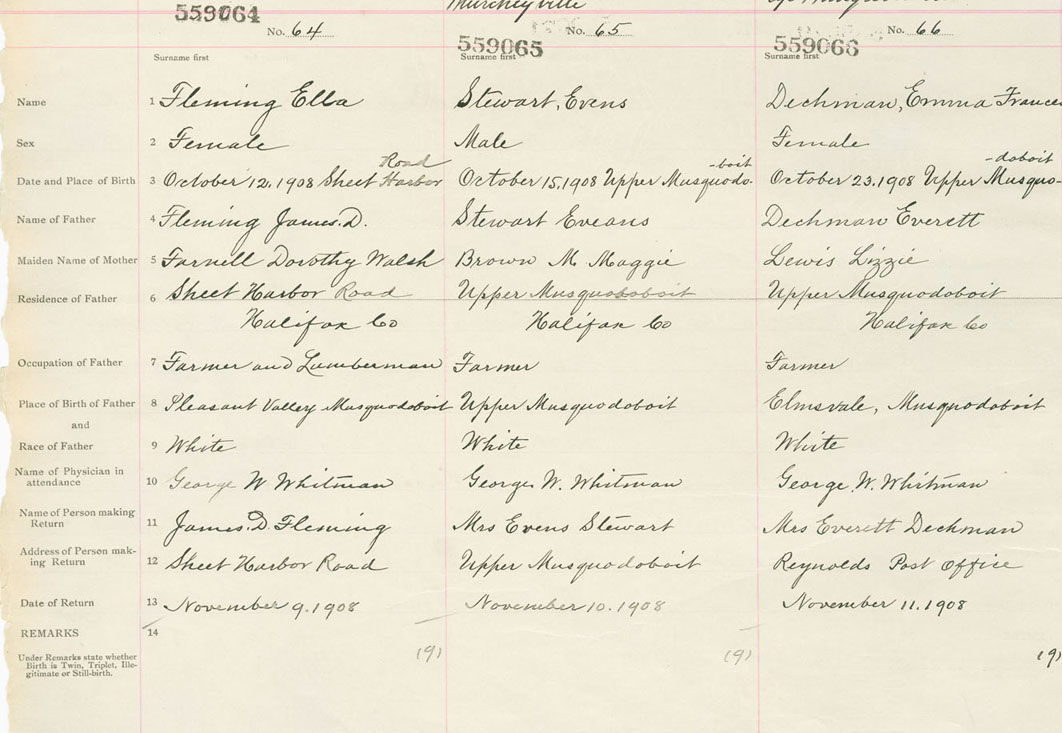 559064
No. 64
Murchyville
559065
No. 65
559066
No. 66
Surname first
Surname first
Surname first
Name 1 Fleming Ella
Stewart, Evens
Dechman, Emma Frances
Sex 2 Female
Male
Female
Date and Place of Birth 3 October 12, 1908 Sheet Harbor Road
October 15, 1908 Upper Musquodo-boit
October 23, 1908 Upper Musquo-doboit
Name of Father 4 Fleming James. D.
Stewart Eveans
Dechman Everett
Maiden Name of Mother 5 Farnell Dorothy Walsh
Brown M. Maggie
Lewis Lizzie
Residence of Father 6 Sheet Harbor Road
Halifax Co
Upper Musquodoboit
Halifax Co
Upper Musquodoboit
Halifax Co
Occupation of Father 7 Farmer and Lumberman
Farmer
Farmer
Place of Birth of Father 8 Pleasant Valley Musquodoboit
Upper Musquodoboit
Elmsvale, Musquodoboit
and
Race of Father 9 White
White
White
Name of Physician in
attendance 10 George W Whitman
George W. Whitman
George W. Whitman
Name of Person making
Return 11 James. D. Fleming
Mrs Evens Stewart
Mrs Everett Dechman
Address of Person mak-
ing Return 12 Sheet Harbor Road
Upper Musquodoboit
Reynolds Post Office
Date of Return 13 November 9, 1908
November 10, 1908
November 11, 1908
REMARKS 14
Under Remarks state whether
Birth is Twin, Triplet, Ille-
gitimate or Still-birth.
(9)
(9)
(9)